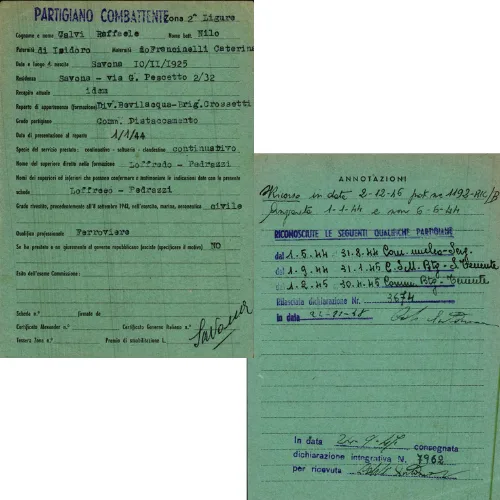 PARTIGIANO COMBATTENTE Zona 2^ Ligure
Cognome e nome Calvi Raffaele Nome batt. Nilo
Paternità di Isidoro Maternità di Francinelli Caterina
Data e luogo di nascita Savona 10/II/1925
Residenza Savona - via G. Pescetto 2/32
Recapito attuale idem
Reparto di appartenenza (formazione) Div. Bevilacqua-Brig. Crossetti
Grado partigiano Comm. Distaccamento
Data di presentazione al reparto 1/1/44
Specie del servizio prestato: continuativo - saltuario - clandestino continuativo
Nome del superiore diretto nella formazione Loffredo - Pedrazzi
Nomi dei superiori ed inferiori che possono confermare e testimoniare le indicazioni date con la presente
scheda Loffredo - Pedrazzi
Grado rivestito, precedentemente all'8 settembre 1943, nell'esercito, marina, aeronautica civile
Qualifica professionale Ferroviere
Se ha prestato o no giuramento al governo repubblicano fascista (specificare il motivo) NO
Esito dell'esame Commissione:
Scheda n. firmata da
Certificato Alexander n. Certificato Governo Italiano n.
Tessera Zona n. Premio di smobilitazione L.
Savona
ANNOTAZIONI
Ricorso in data 2-12-46 prot. n. 1192 RIC/B
1-1-44 e non 6-6-44
RICONOSCIUTE LE SEGUENTI QUALIFICHE PARTIGIANE
dal 1.5.44 31.8.44 Com. nucleo - Serg.
dal 1.9.44 31.1.45 C.S.M. Btg - S. Tenente
dal 1.2.45 30.4.45 Comm. Btg - Tenente
Rilasciata dichiarazione Nr. 3674
in data
In data consegnata
dichiarazione integrativa N. 7962
per ricevuta